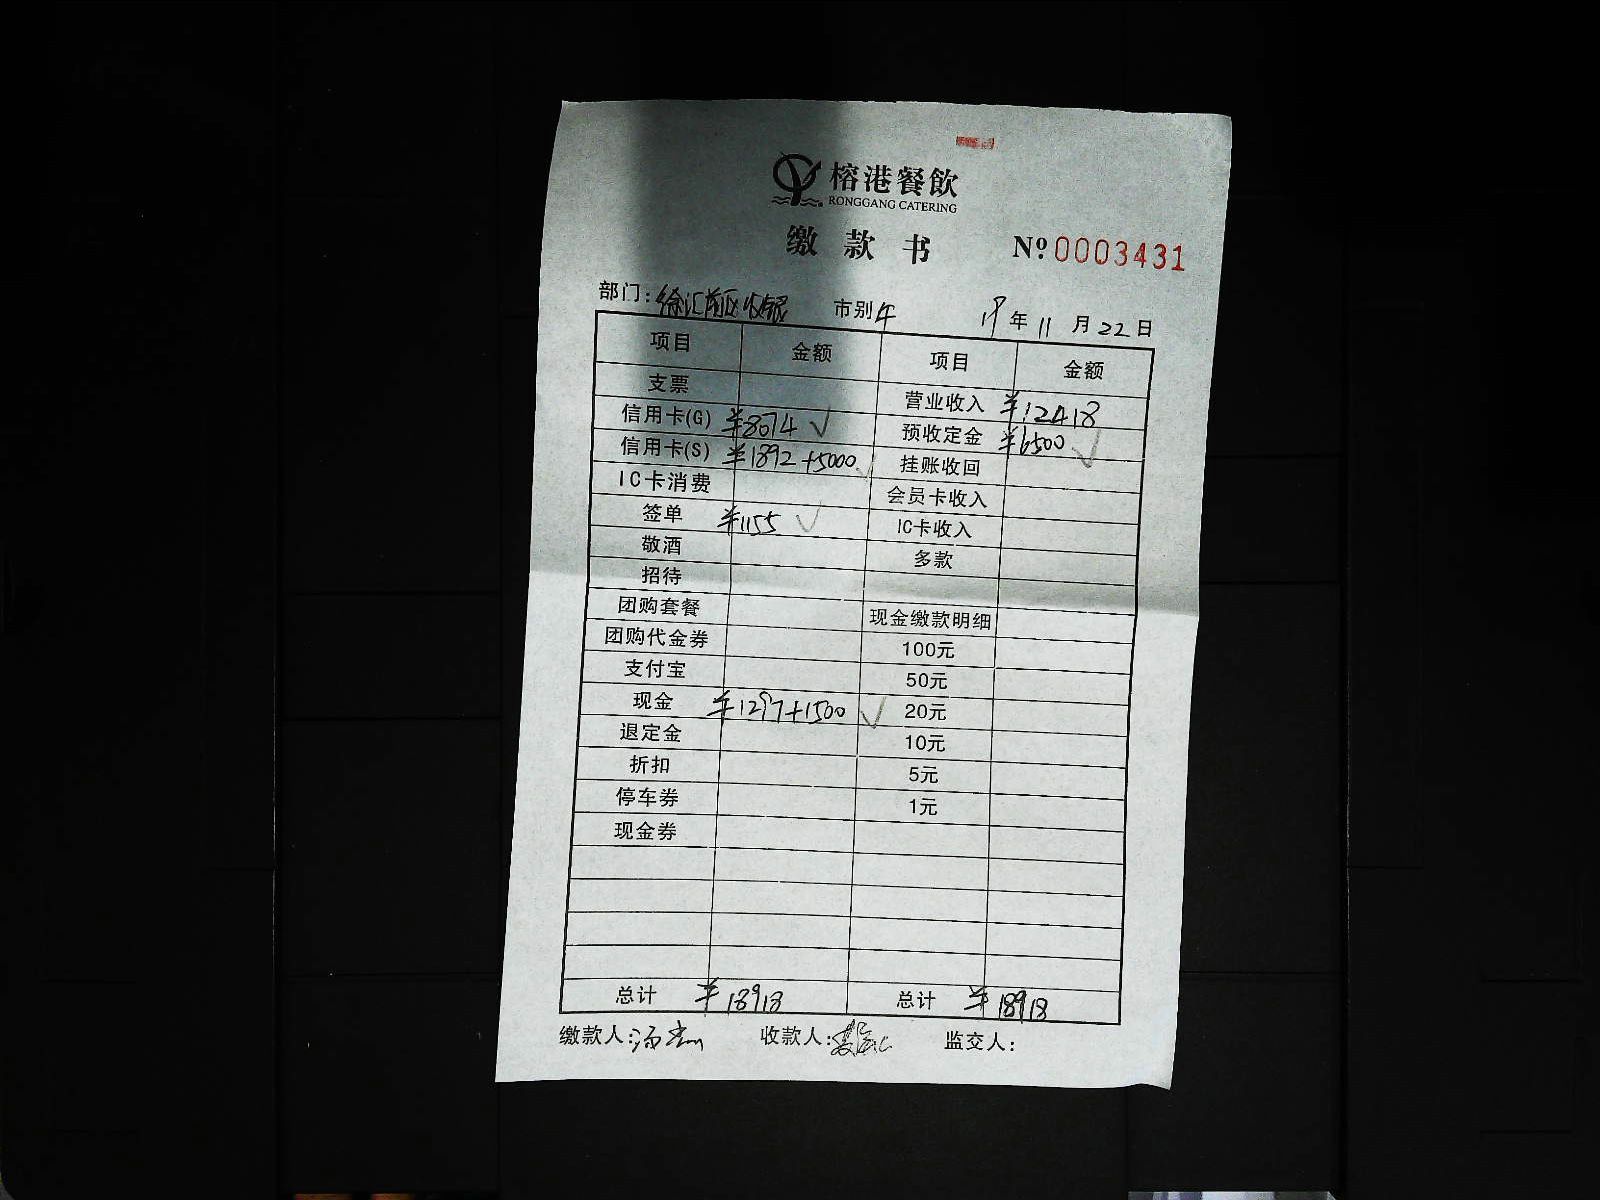 榕港餐飲
RONGGANG CATERING
缴款书 № 0003431
部门: 徐汇前区收银 市别 午 19年 11月 22日
项目 金额 项目 金额
支票 营业收入 ¥12418
信用卡(G) ¥8074 ✓ 预收定金 ¥6500 ✓
信用卡(S) ¥1892+5000 ✓ 挂账收回
IC卡消费 会员卡收入
签单 ¥1155 ✓ IC卡收入
敬酒 多款
招待
团购套餐 现金缴款明细
团购代金券 100元
支付宝 50元
现金 ¥1297+1500 ✓ 20元
退定金 10元
折扣 5元
停车券 1元
现金券
总计 ¥18918 总计 ¥18918
缴款人: 收款人: 监交人: